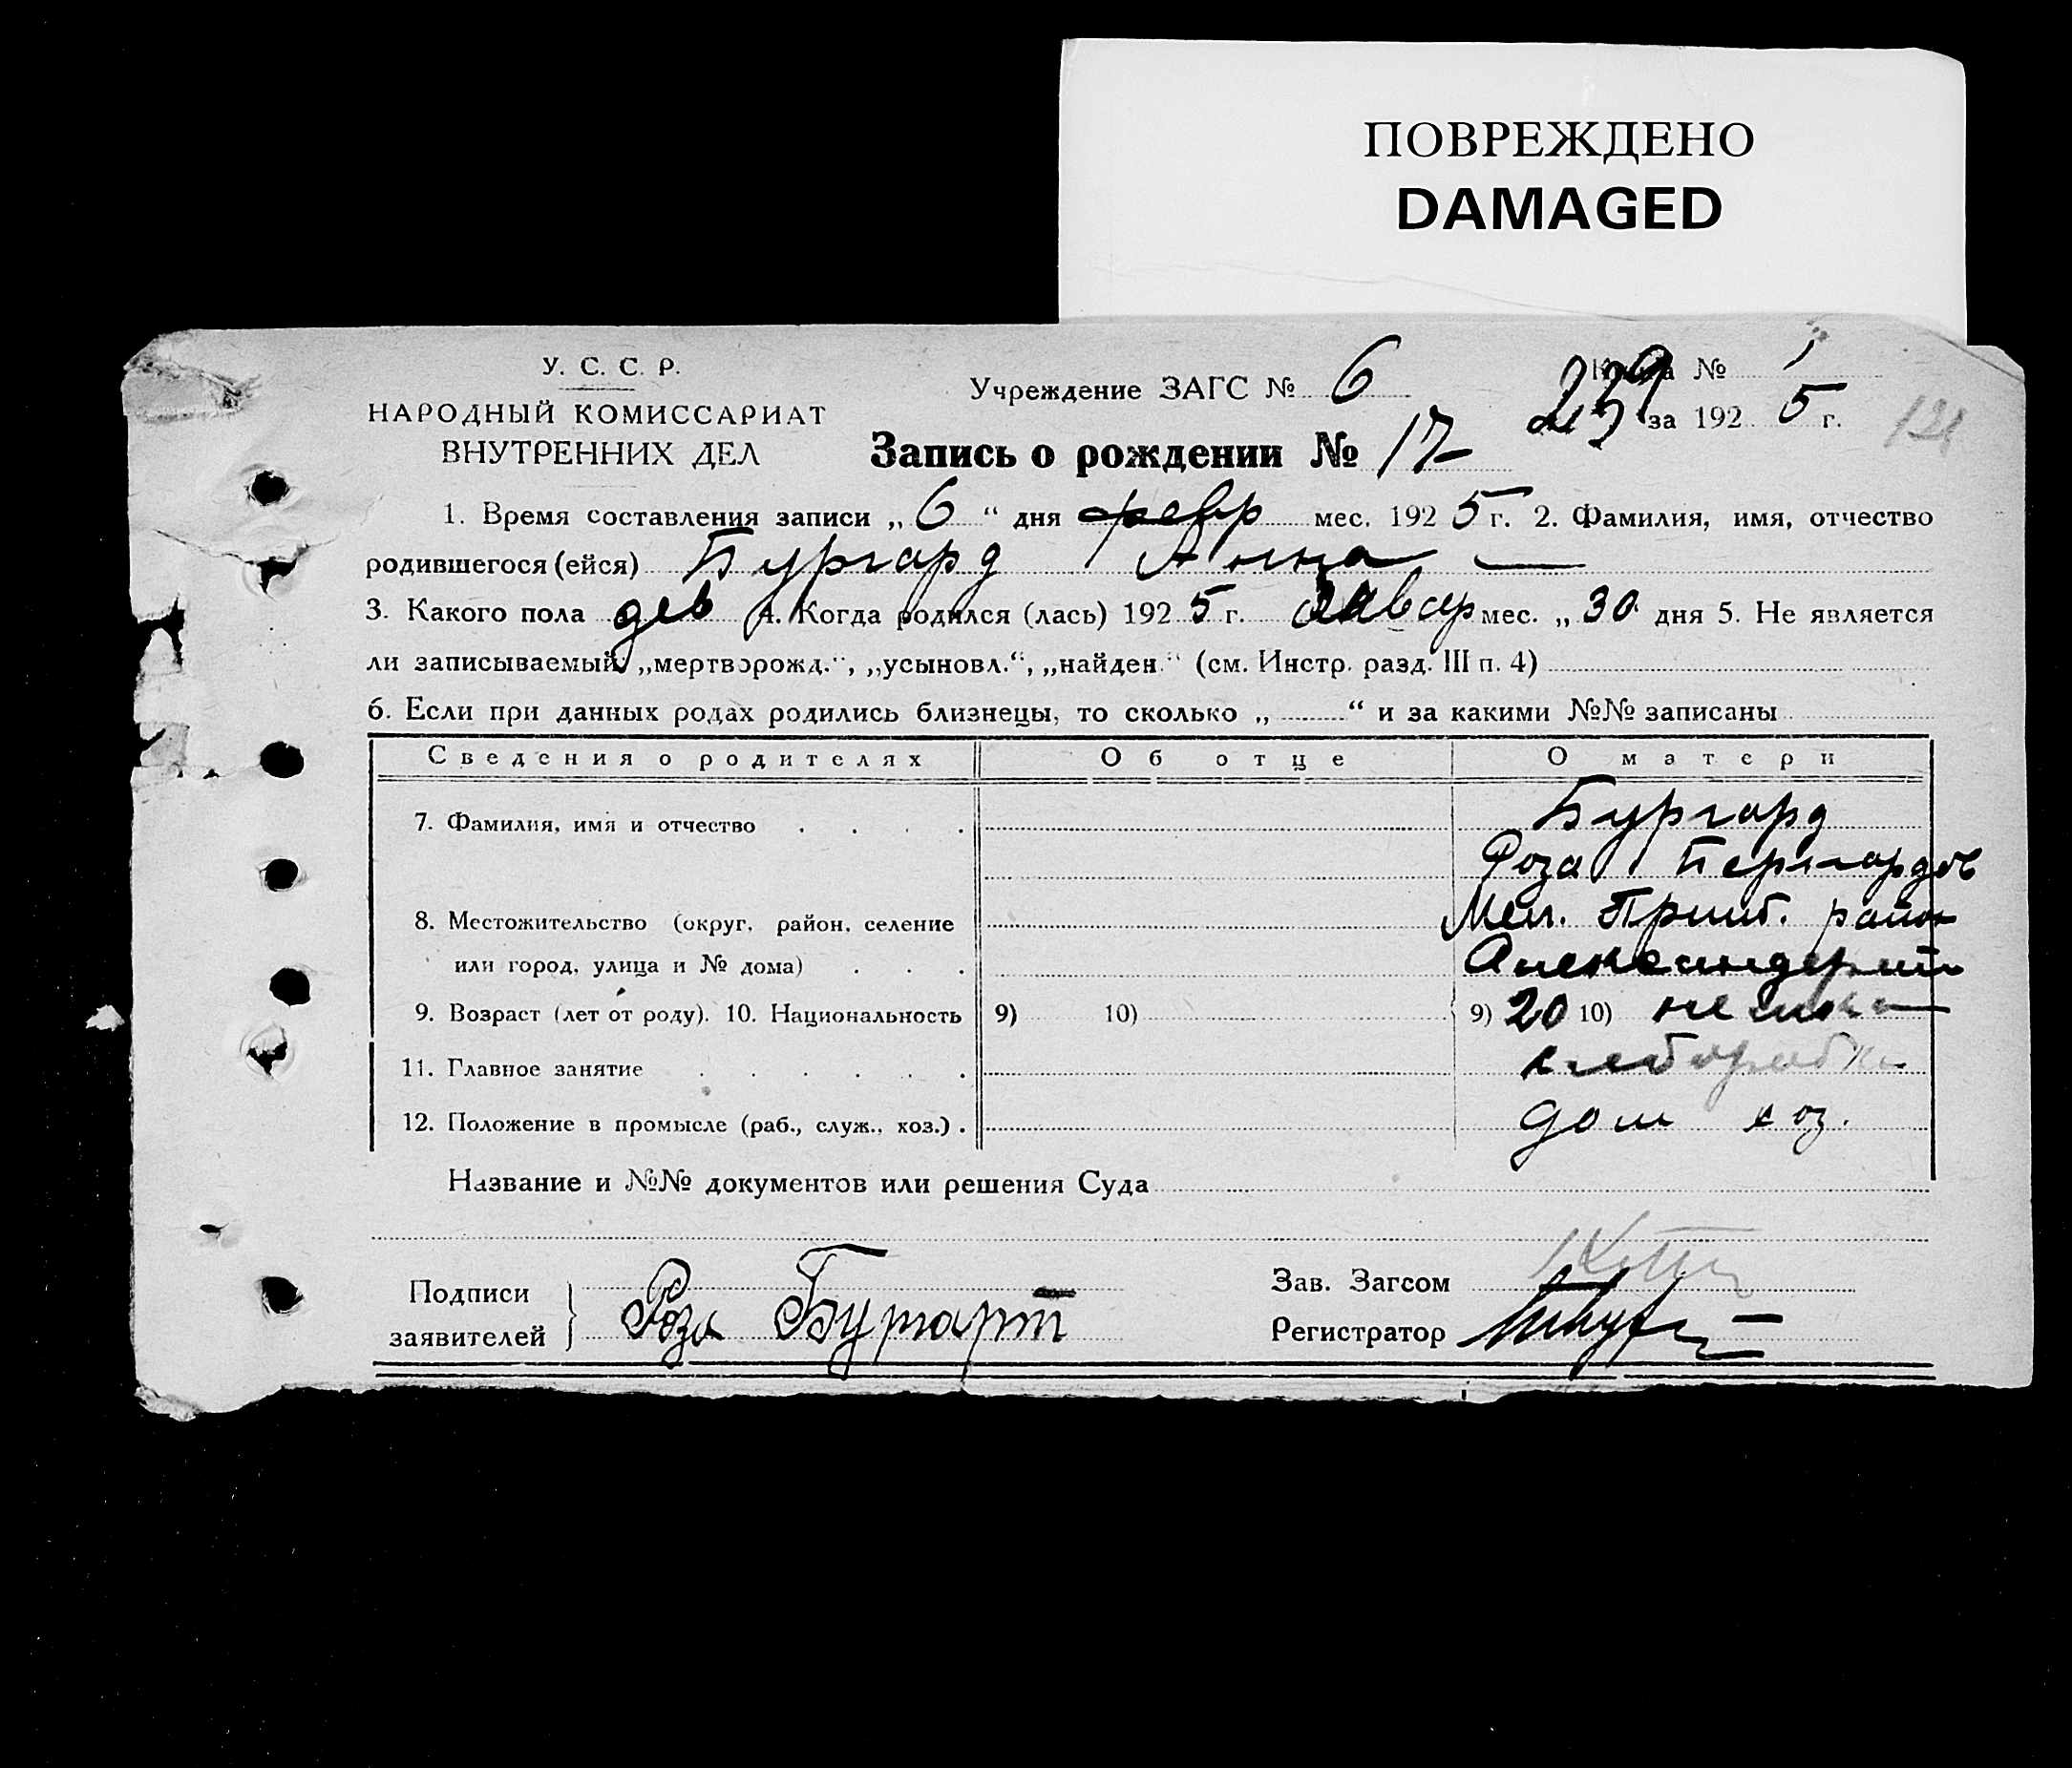 ПОВРЕЖДЕНО
DAMAGED
У. С. С. Р.
НАРОДНЫЙ КОМИССАРИАТ
ВНУТРЕННИХ ДЕЛ
Учреждение ЗАГС № 6
239 Книга № 1
за 1925 г. 121
Запись о рождении № 17
1. Время составления записи „6“ дня февр мес. 1925 г. 2. Фамилия, имя, отчество
родившегося (ейся) Бургард Анна —
3. Какого пола дев 4. Когда родился (лась) 1925 г. Январ мес. „30 дня 5. Не является
ли записываемый „мертворожд.“, „усыновл.“, „найден.“ (см. Инстр. разд. III п. 4)
6. Если при данных родах родились близнецы, то сколько „ “ и за какими №№ записаны
Сведения о родителях Об отце О матери
7. Фамилия, имя и отчество . . . . Бургард
Роза Бернгардов
8. Местожительство (округ, район, селение Мел. Пришб. район
или город, улица и № дома) . . .
9. Возраст (лет от роду). 10. Национальность 9) 10) 9) 20 10) немка
11. Главное занятие . . . . . . хлеборобка
12. Положение в промысле (раб., служ., хоз.) . дом хоз.
Название и №№ документов или решения Суда
Подписи
заявителей } Роза Бургарт
Зав. Загсом
Регистратор